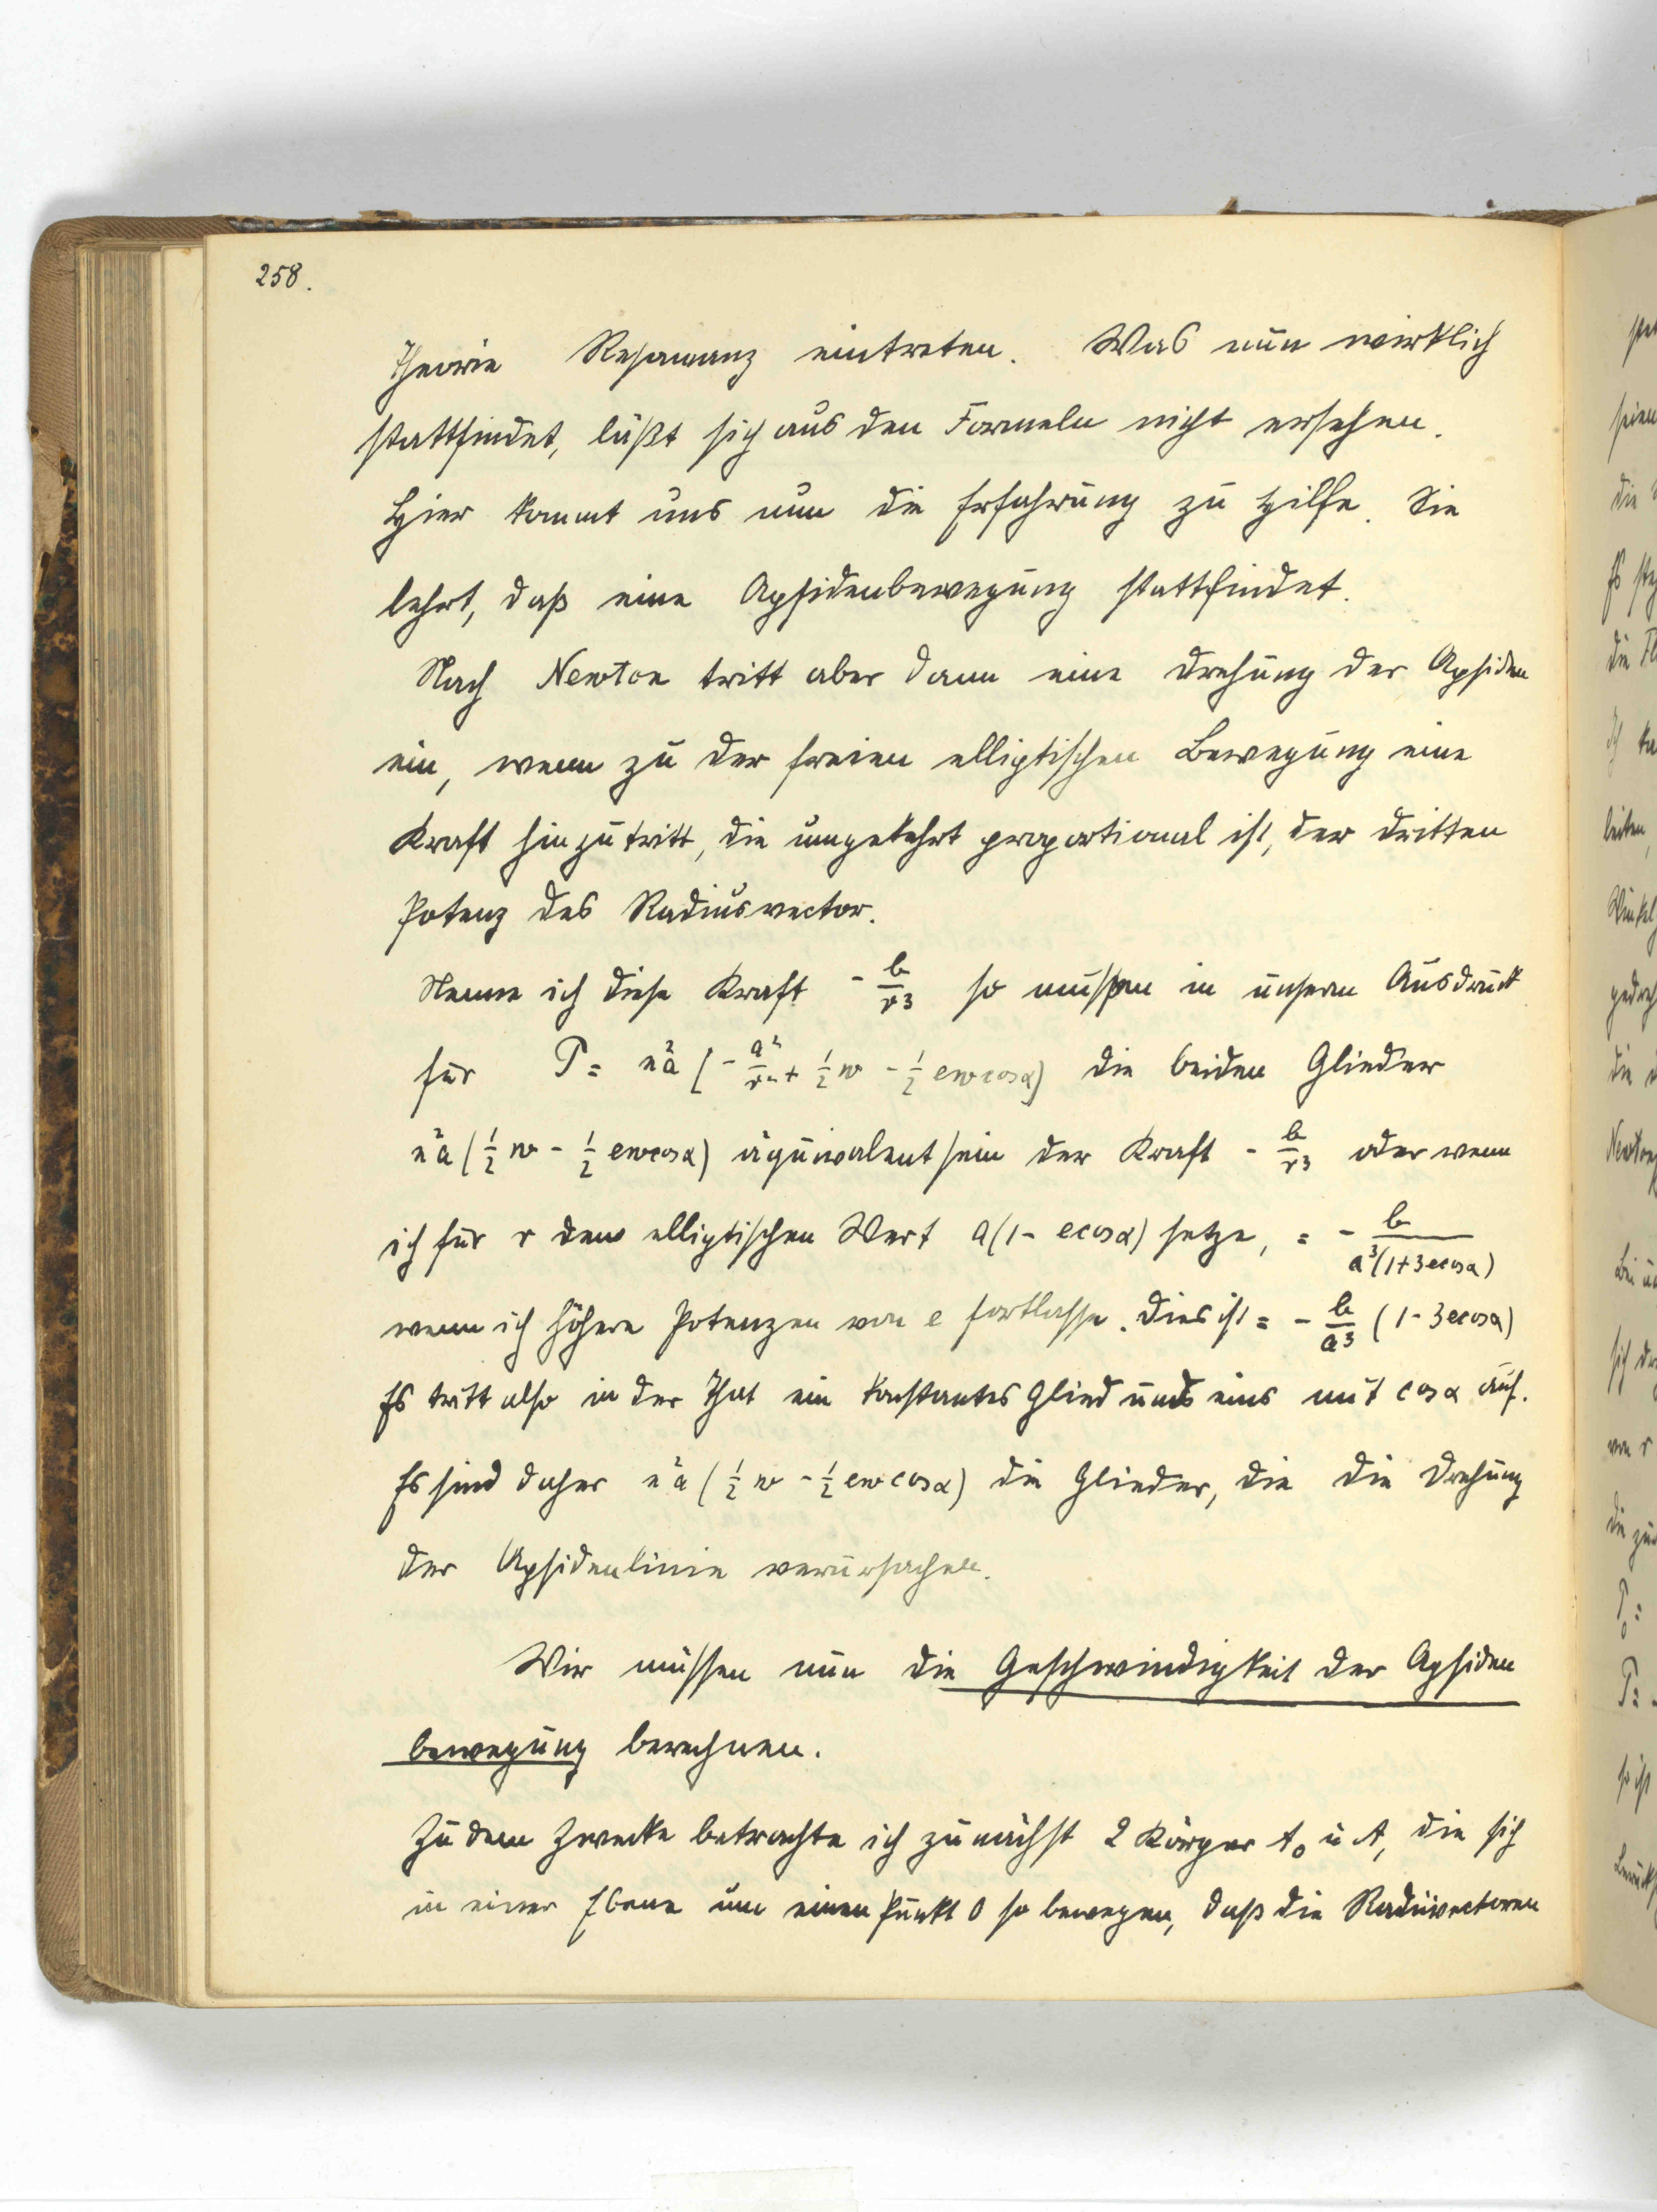 258.
Theorie Resonanz eintreten. Was nun wirklich
stattfindet, läßt sich aus den Formeln nicht ersehen.
Hier kommt uns nun die Erfahrung zu Hilfe. Sie
lehrt, daß eine Apsidenbewegung stattfindet.
Nach Newton tritt aber dann eine Drehung der Apsiden
ein, wenn zu der freien elliptischen Bewegung eine
Kraft hinzutritt, die umgekehrt proportional ist, der dritten
Potenz des Radiusvector.
Nenne ich diese Kraft - b/r³ so müssen in unserm Ausdruck
für P = n²a [- a²/r² + 1/2 w - 1/2 ew cos α) die beiden Glieder
n²a (1/2 w - 1/2 ew cos α) äquivalent sein der Kraft - b/r³ oder wenn
ich für r den elliptischen Wert a(1 - e cos α) setze, = - b/a³(1+3e cos α)
wenn ich höhere Potenzen von e fortlasse. Dies ist = - b/a³ (1 - 3e cos α)
Es tritt also in der That ein konstantes Glied und eins mit cos α auf.
Es sind daher n²a (1/2 w - 1/2 ew cos α) die Glieder, die die Drehung
der Apsidenlinie verursachen.
Wir müssen nun die Geschwindigkeit der Apsiden
bewegung berechnen.
Zu dem Zwecke betrachte ich zunächst 2 Körper A₀ u A, die sich
in einer Ebene um einen Punkt O so bewegen, daß die Radiivectoren